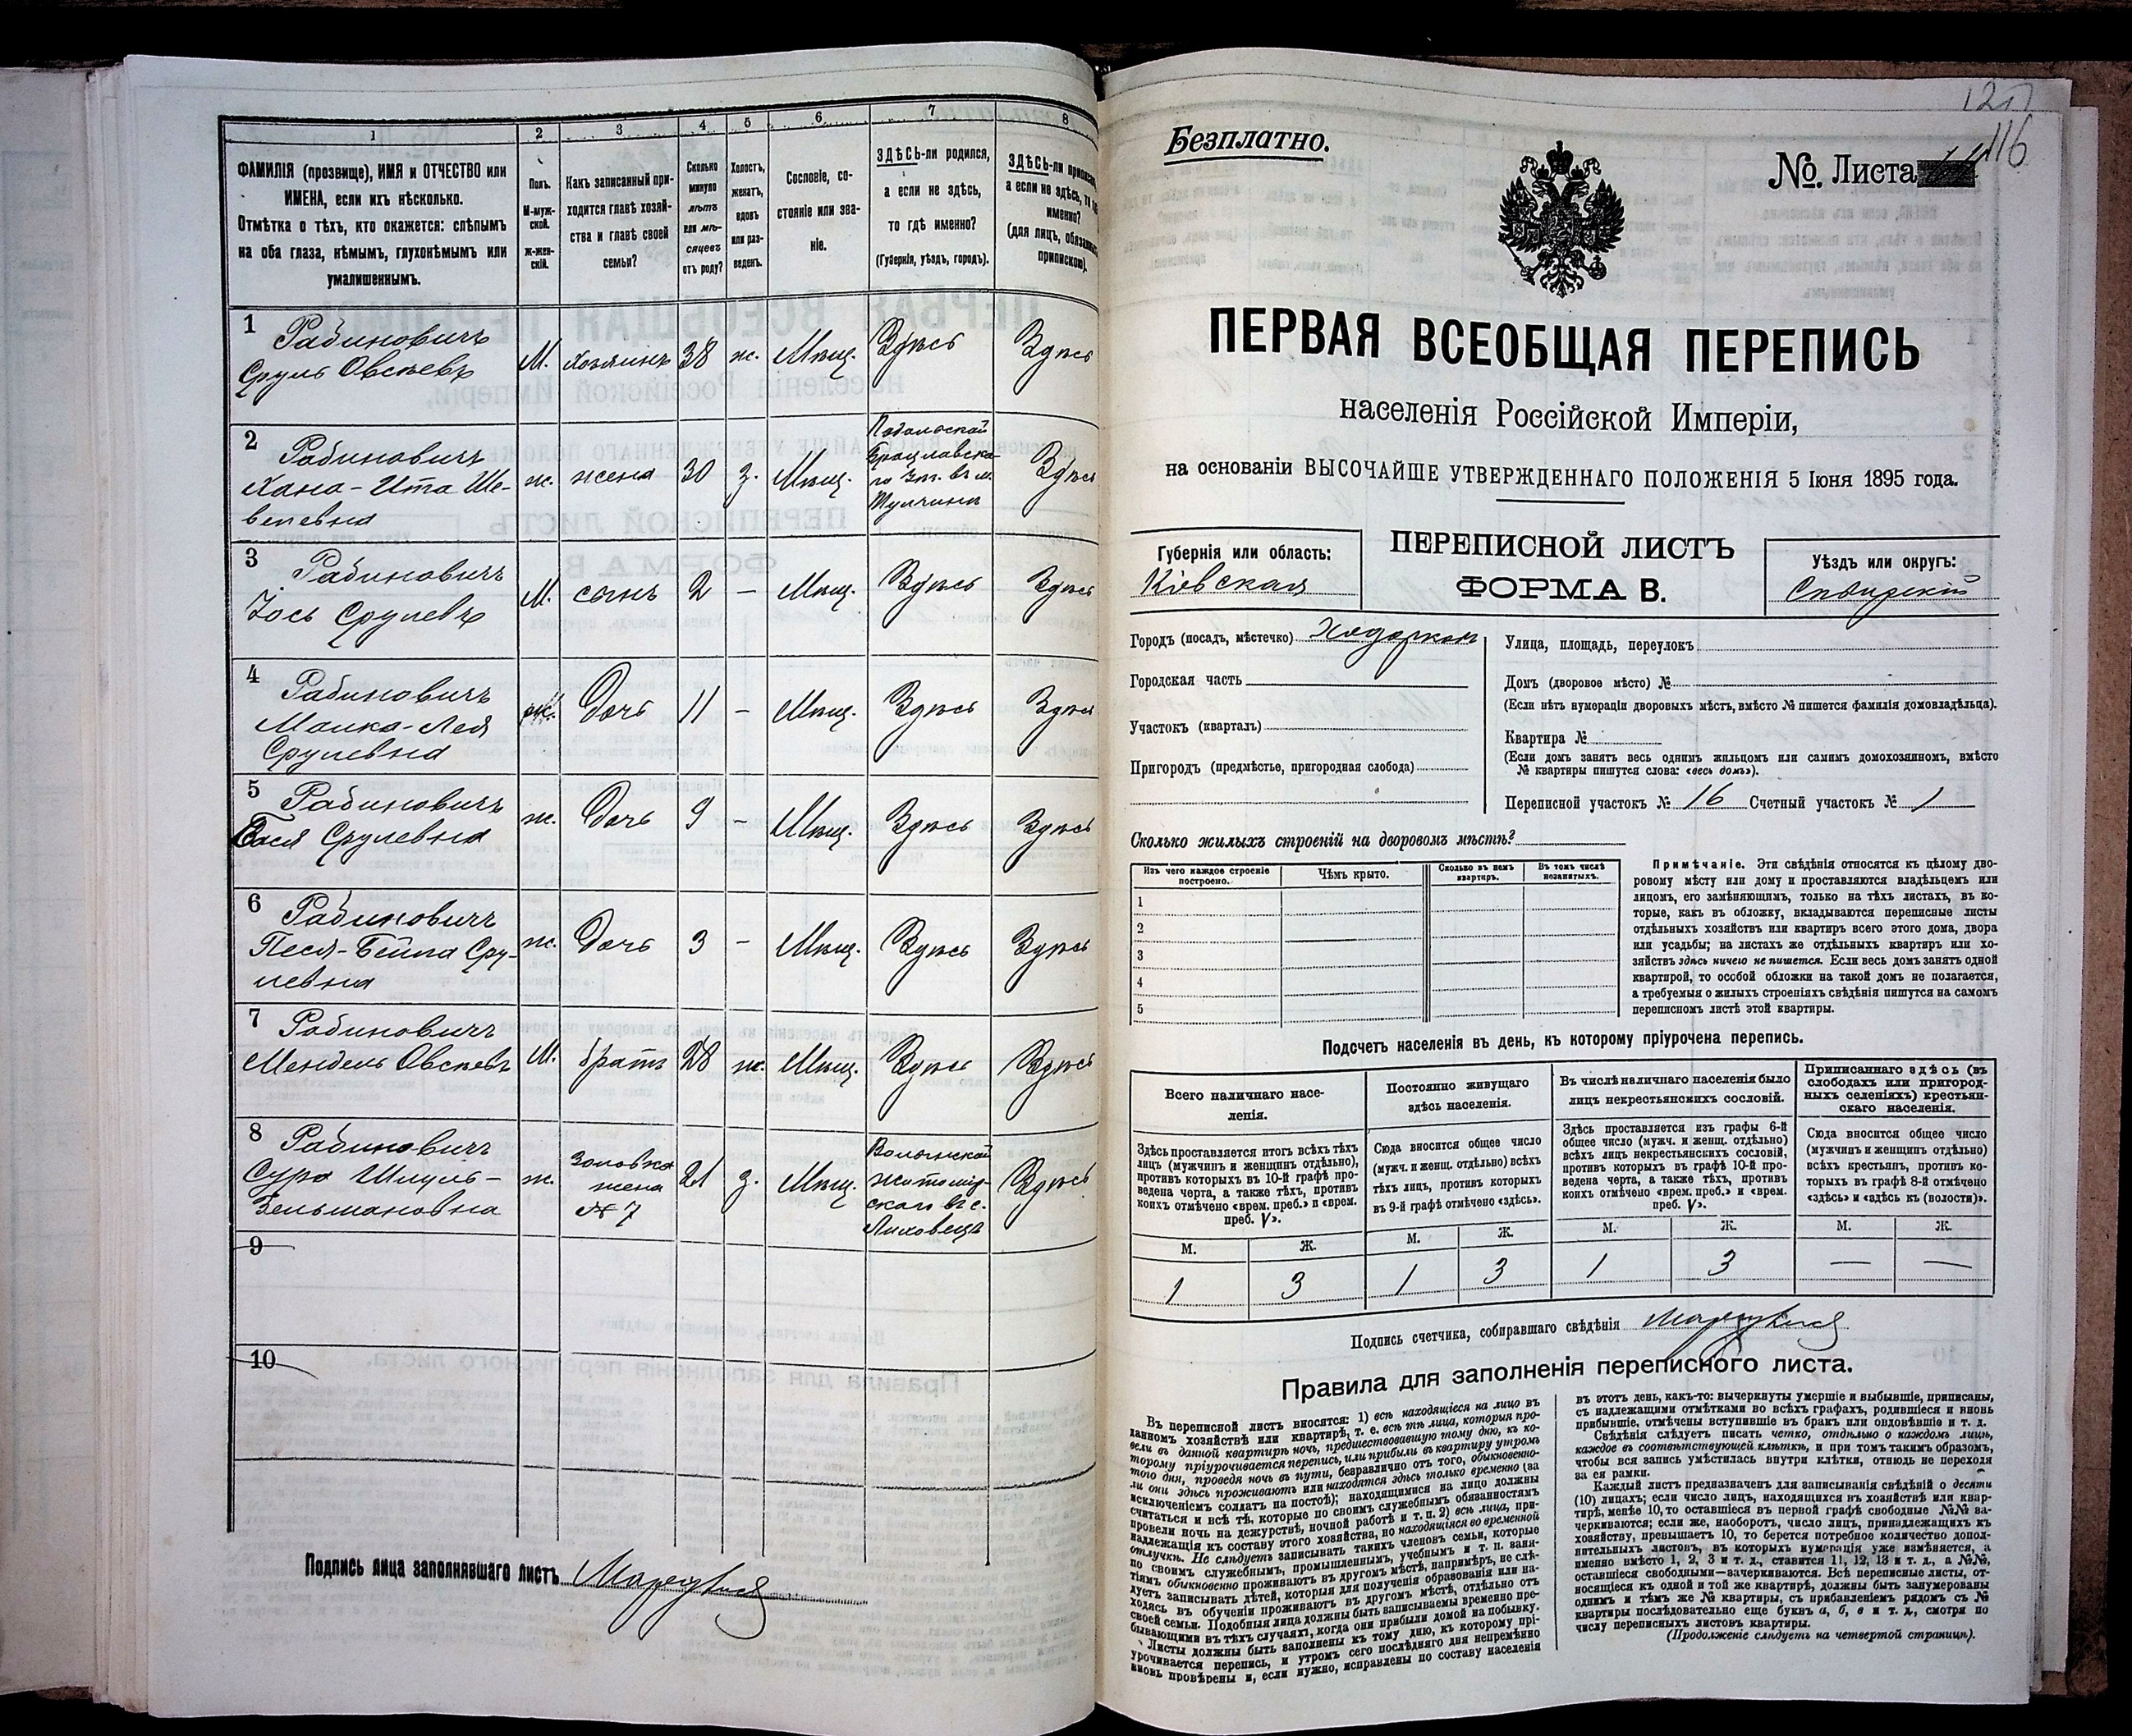 1
2
3
4
5
6
7
8
ФАМИЛІЯ (прозвище), ИМЯ и ОТЧЕСТВО или
ИМЕНА, если ихъ нѣсколько.
Отмѣтка о тѣхъ, кто окажется: слѣпымъ
на оба глаза, нѣмымъ, глухонѣмымъ или
умалишеннымъ.
Полъ.
М-муж-
ской.
Ж-жен-
скій.
Какъ записанный при-
ходится главѣ хозяй-
ства и главѣ своей
семьи?
Сколько
минуло
лѣтъ
или мѣ-
сяцевъ
отъ роду?
Холостъ,
женатъ,
вдовъ
или раз-
веденъ.
Сословіе, со-
стояніе или зва-
ніе.
ЗДѢСЬ-ли родился,
а если не здѣсь,
то гдѣ именно?
(Губернія, уѣздъ, городъ).
ЗДѢСЬ-ли
а если не здѣсь,
именно?
(для лицъ,
припискою).
1 Рабиновичъ
Сруль Овсѣевъ
М. хозяинъ 38 ж. Мѣщ. Здѣсь Здѣсь
2 Рабиновичъ
Хана-Ита Ше-
велевна
ж. жена 30 з. Мѣщ.
Подольской
Брацлавска-
го въ м.
Тульчинъ
Здѣсь
3 Рабиновичъ
Іось Срулевъ
М. сынъ 2 — Мѣщ. Здѣсь Здѣсь
4 Рабиновичъ
Малка-Лея
Срулевна
ж. Дочь 11 — Мѣщ. Здѣсь Здѣсь
5 Рабиновичъ
Бася Срулевна
ж. Дочь 9 — Мѣщ. Здѣсь Здѣсь
6 Рабиновичъ
Песя-Бейла Сру-
левна
ж. Дочь 3 — Мѣщ. Здѣсь Здѣсь
7 Рабиновичъ
Мендель Овсѣевъ
М. братъ 28 ж. Мѣщ. Здѣсь Здѣсь
8 Рабиновичъ
Сура Шмуль-
Зельмановна
ж.
золовка
жена
№ 7
21 з. Мѣщ.
Волынской
житомир-
скаго въ с.
Здѣсь
9
10
Подпись лица заполнявшаго листъ
116
Безплатно.
№. Листа
ПЕРВАЯ ВСЕОБЩАЯ ПЕРЕПИСЬ
населенія Россійской Имперіи,
на основаніи ВЫСОЧАЙШЕ УТВЕРЖДЕННАГО ПОЛОЖЕНІЯ 5 Іюня 1895 года.
Губернія или область:
Кіевская
ПЕРЕПИСНОЙ ЛИСТЪ
ФОРМА В.
Уѣздъ или округъ:
Сквирскій
Городъ (посадъ, мѣстечко) Ходорковъ
Городская часть
Участокъ (кварталъ)
Пригородъ (предмѣстье, пригородная слобода)
Улица, площадь, переулокъ
Домъ (дворовое мѣсто) №
(Если нѣтъ нумераціи дворовыхъ мѣстъ, вмѣсто № пишется фамилія домовладѣльца).
Квартира №
(Если домъ занятъ весь однимъ жильцомъ или самимъ домохозяиномъ, вмѣсто
№ квартиры пишутся слова: «весь домъ»).
Переписной участокъ № 16 Счетный участокъ № 1
Сколько жилыхъ строеній на дворовомъ мѣстѣ?
Изъ чего каждое строеніе
построено.
Чѣмъ крыто.
Сколько въ немъ
квартиръ.
Въ томъ числѣ
незанятыхъ.
1
2
3
4
5
Примѣчаніе. Эти свѣдѣнія относятся къ цѣлому дво-
ровому мѣсту или дому и проставляются владѣльцемъ или
лицомъ, его замѣняющимъ, только на тѣхъ листахъ, въ ко-
торые, какъ въ обложку, вкладываются переписные листы
отдѣльныхъ хозяйствъ или квартиръ всего этого дома, двора
или усадьбы; на листахъ же отдѣльныхъ квартиръ или хо-
зяйствъ здѣсь ничего не пишется. Если весь домъ занятъ одной
квартирой, то особой обложки на такой домъ не полагается,
а требуемыя о жилыхъ строеніяхъ свѣдѣнія пишутся на самомъ
переписномъ листѣ этой квартиры.
Подсчетъ населенія въ день, къ которому пріурочена перепись.
Всего наличнаго насе-
ленія.
Здѣсь проставляется итогъ всѣхъ тѣхъ
лицъ (мужчинъ и женщинъ отдѣльно),
противъ которыхъ въ 10-й графѣ про-
ведена черта, а также тѣхъ, противъ
коихъ отмѣчено «врем. преб.» и «врем.
преб. V».
Постоянно живущаго
здѣсь населенія.
Сюда вносится общее число
(мужч. и женщ. отдѣльно) всѣхъ
тѣхъ лицъ, противъ которыхъ
въ 9-й графѣ отмѣчено «здѣсь».
Въ числѣ наличнаго населенія было
лицъ некрестьянскихъ сословій.
Здѣсь проставляется изъ графы 6-й
общее число (мужч. и женщ. отдѣльно)
всѣхъ лицъ некрестьянскихъ сословій,
противъ которыхъ въ графѣ 10-й про-
ведена черта, а также тѣхъ, противъ
коихъ отмѣчено «врем. преб.» и «врем.
преб. V».
Приписаннаго здѣсь (въ
слободахъ или пригород-
ныхъ селеніяхъ) крестьян-
скаго населенія.
Сюда вносится общее число
(мужчинъ и женщинъ отдѣльно)
всѣхъ крестьянъ, противъ ко-
торыхъ въ графѣ 8-й отмѣчено
«здѣсь» и «здѣсь къ (волости)».
М. Ж. М. Ж. М. Ж. М. Ж.
1 3 1 3 1 3 — —
Подпись счетчика, собиравшаго свѣдѣнія
Правила для заполненія переписного листа.
Въ переписной листъ вносятся: 1) всѣ находящіеся на лицо въ
данномъ хозяйствѣ или квартирѣ, т. е. всѣ тѣ лица, которыя про-
вели въ данной квартирѣ ночь, предшествовавшую тому дню, къ ко-
торому пріурочивается перепись, или прибыли въ квартиру утромъ
того дня, проведя ночь въ пути, безразлично отъ того, обыкновенно-
ли они здѣсь проживаютъ или находятся здѣсь только временно (за
исключеніемъ солдатъ на постоѣ); находящимися на лицо должны
считаться и всѣ тѣ, которые по своимъ служебнымъ обязанностямъ
провели ночь на дежурствѣ, ночной работѣ и т. п. 2) всѣ лица, при-
надлежащія къ составу этого хозяйства, но находящіяся во временной
отлучкѣ. Не слѣдуетъ записывать такихъ членовъ семьи, которые
по своимъ служебнымъ, промышленнымъ, учебнымъ и т. п. заня-
тіямъ обыкновенно проживаютъ въ другомъ мѣстѣ, напримѣръ, не слѣ-
дуетъ записывать дѣтей, которыя для полученія образованія или на-
ходясь въ обученіи проживаютъ въ другомъ мѣстѣ, отдѣльно отъ
своей семьи. Подобныя лица должны быть записываемы временно пре-
бывающими въ тѣхъ случаяхъ, когда они прибыли домой на побывку.
Листы должны быть заполнены къ тому дню, къ которому прі-
урочивается перепись, и утромъ сего послѣдняго дня непремѣнно
вновь провѣрены и, если нужно, исправлены по составу населенія
въ этотъ день, какъ-то: вычеркнуты умершіе и выбывшіе, приписаны,
съ надлежащими отмѣтками во всѣхъ графахъ, родившіеся и вновь
прибывшіе, отмѣчены вступившіе въ бракъ или овдовѣвшіе и т. д.
Свѣдѣнія слѣдуетъ писать четко, отдѣльно о каждомъ лицѣ,
каждое въ соотвѣтствующей клѣткѣ, и при томъ такимъ образомъ,
чтобы вся запись умѣстилась внутри клѣтки, отнюдь не переходя
за ея рамки.
Каждый листъ предназначенъ для записыванія свѣдѣній о десяти
(10) лицахъ; если число лицъ, находящихся въ хозяйствѣ или квар-
тирѣ, менѣе 10, то оставшіеся въ первой графѣ свободные №№ за-
черкиваются; если же, наоборотъ, число лицъ, принадлежащихъ къ
хозяйству, превышаетъ 10, то берется потребное количество допол-
нительныхъ листовъ, въ которыхъ нумерація уже измѣняется, а
именно вмѣсто 1, 2, 3 и т. д., ставится 11, 12, 13 и т. д., а №№,
оставшіеся свободными—зачеркиваются. Всѣ переписные листы, от-
носящіеся къ одной и той же квартирѣ, должны быть занумерованы
однимъ и тѣмъ же № квартиры, съ прибавленіемъ рядомъ съ №
квартиры послѣдовательно еще буквъ а, б, в и т. д., смотря по
числу переписныхъ листовъ квартиры.
(Продолженіе слѣдуетъ на четвертой страницѣ).